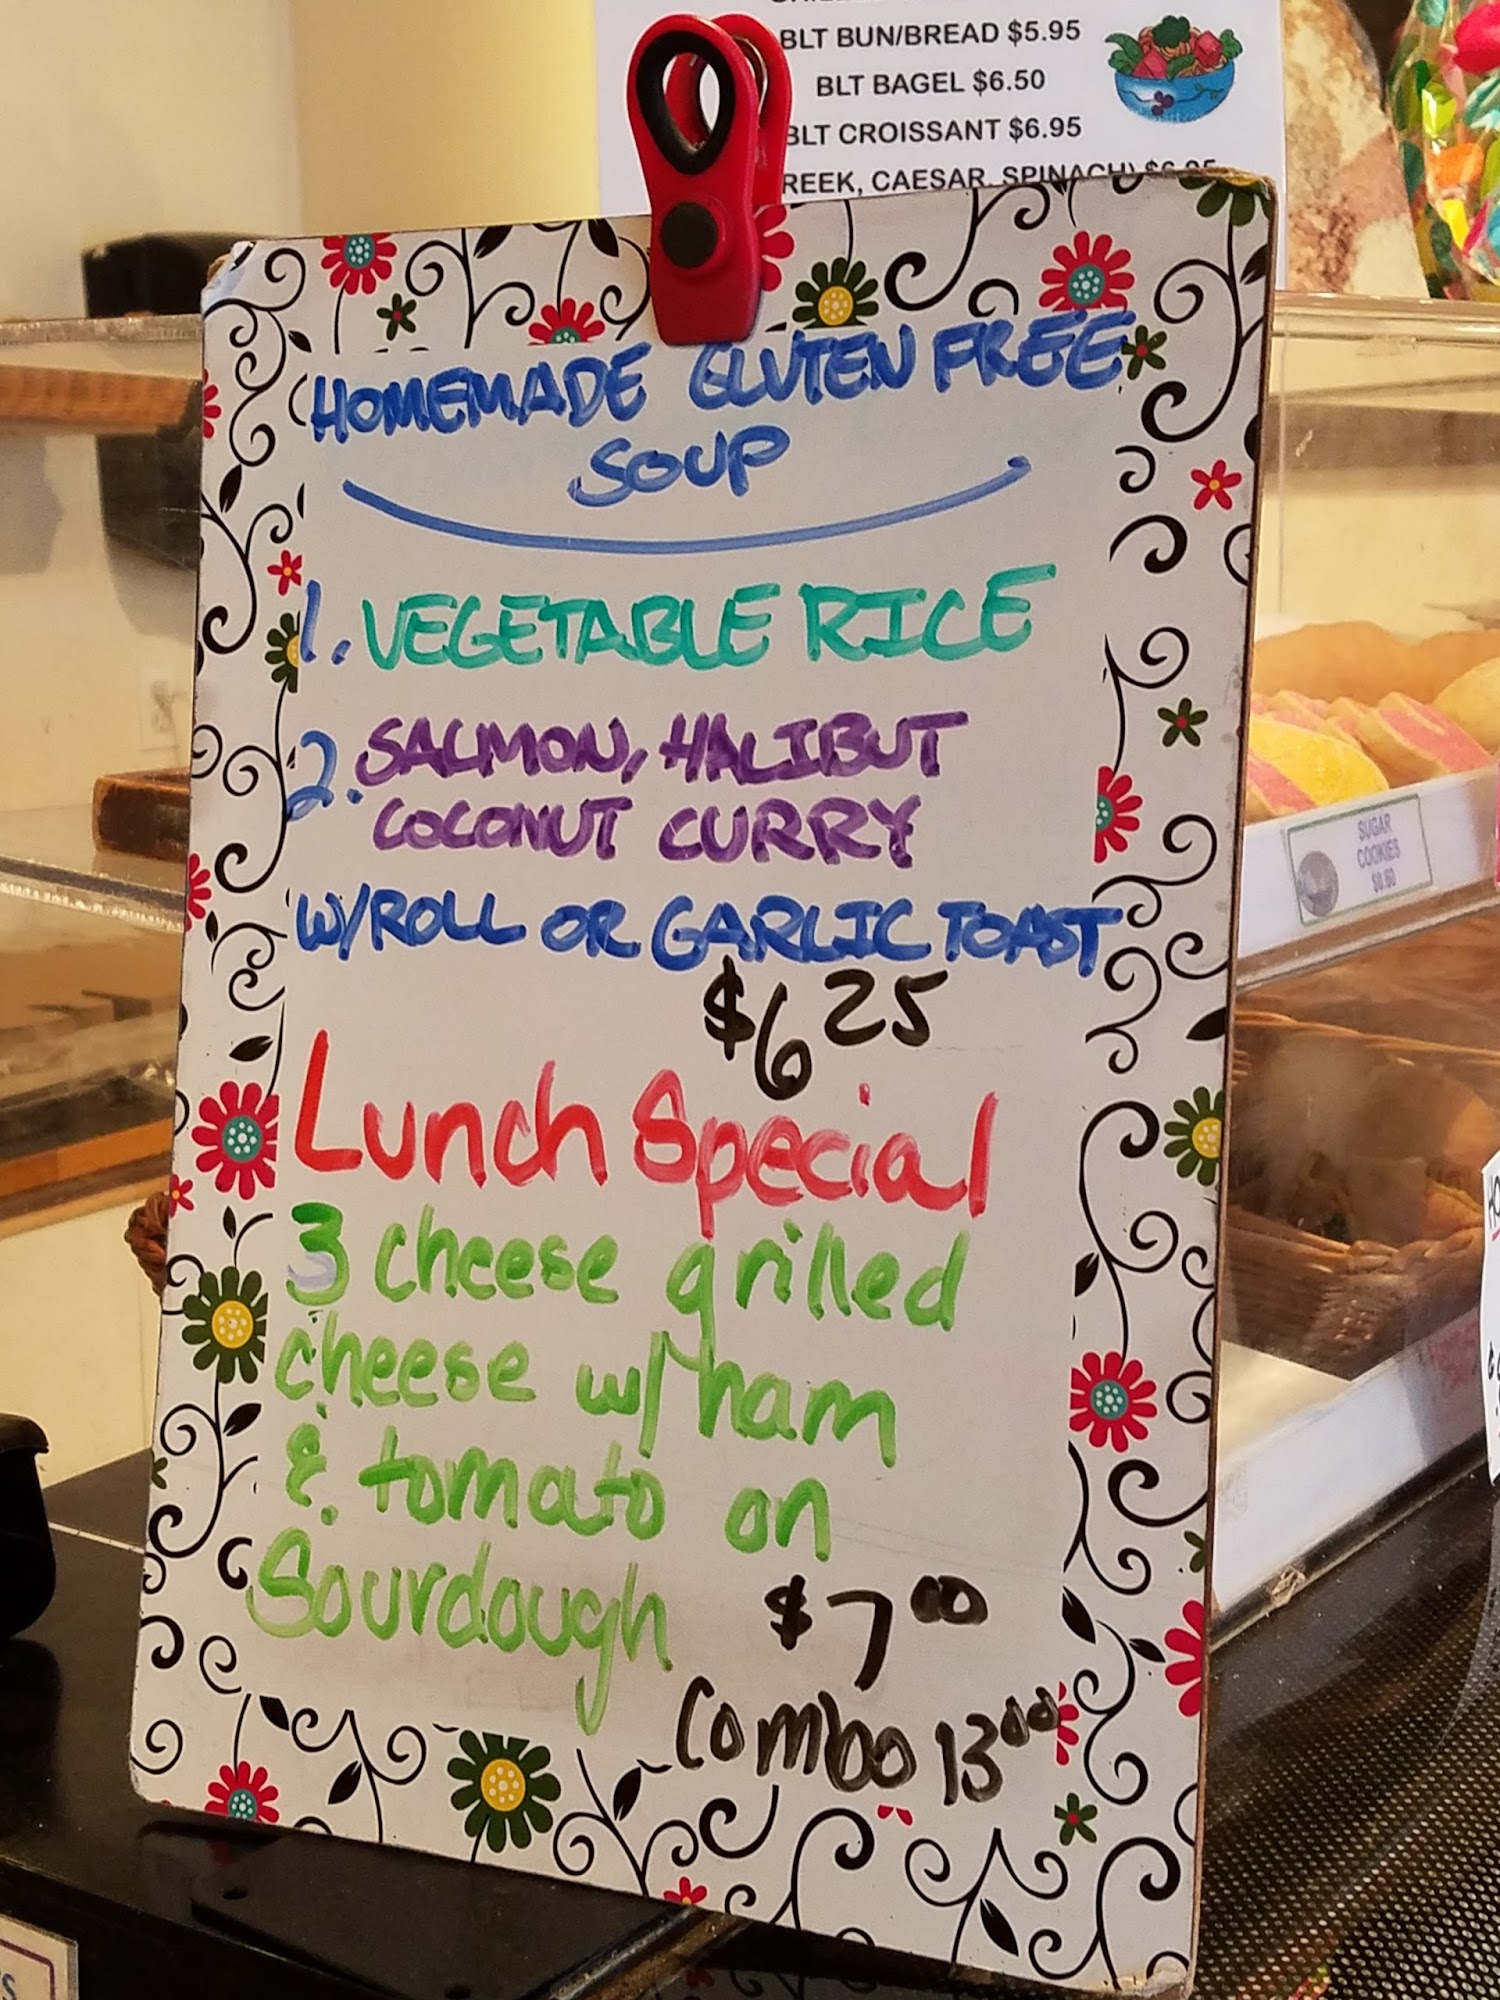 BLT BUN/BREAD $5.95
BLT BAGEL $6.50
BLT CROISSANT $6.95
CAESAR, SPINACH)
HOMEMADE GLUTEN FREE
SOUP
1. VEGETABLE RICE
2. SALMON, HALIBUT
COCONUT CURRY
W/ROLL OR GARLIC TOAST
$6 25
Lunch Special
3 cheese grilled
cheese w/ham
& tomato on
Sourdough $7 00
Combo 13 00
SUGAR
COOKIES
$0.60